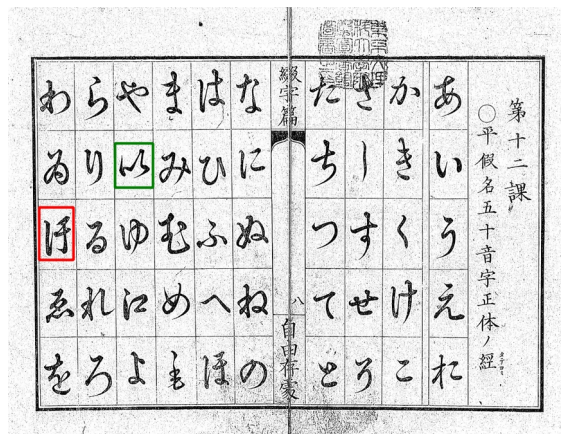 第十二課
○平假名五十音字正体ノ經
あいうえお
かきくけこ
さしすせそ
たちつてと
綴字篇
八
なにぬねの
はひふへほ
まみむめも
や以ゆ江よ
らりるれろ
わゐ汙ゑを